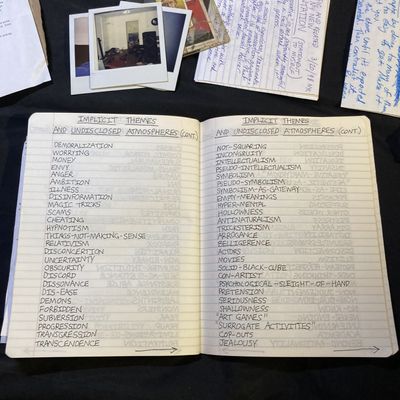 IMPLICIT THEMES
AND UNDISCLOSED ATMOSPHERES (CONT.)
DEMORALIZATION
WORRYING
MONEY
ENVY
ANGER
AMBITION
ILLNESS
DISINFORMATION
MAGIC TRICKS
SCAMS
CHEATING
HYPNOTISM
THINGS-NOT-MAKING-SENSE
RELATIVISM
DISCONCERTION
UNCERTAINTY
OBSCURITY
DISCORD
DISSONANCE
DIS-EASE
DEMONS
FORBIDDEN
SUBVERSION
PROGRESSION
TRANSGRESSION
TRANSCENDENCE
IMPLICIT THEMES
AND UNDISCLOSED ATMOSPHERES (CONT.)
NOT-SQUARING
INCONGRUITY
INTELLECTUALISM
PSEUDO-INTELLECTUALISM
SYMBOLISM
PSEUDO-SYMBOLISM
SYMBOLISM-AS-GATEWAY
EMPTY-MEANINGS
HYPER-MENTAL
HOLLOWNESS
ANTINATURALISM
TRICKSTERISM
ARROGANCE
BELLIGERENCE
ACTORS
MOVIES
SOLID-BLACK-CUBE
CON-ARTIST
PSYCHOLOGICAL-SLEIGHT-OF-HAND
PRETENSION
SERIOUSNESS
SHALLOWNESS
"ART GAMES"
"SURROGATE ACTIVITIES"
COP-OUTS
JEALOUSY